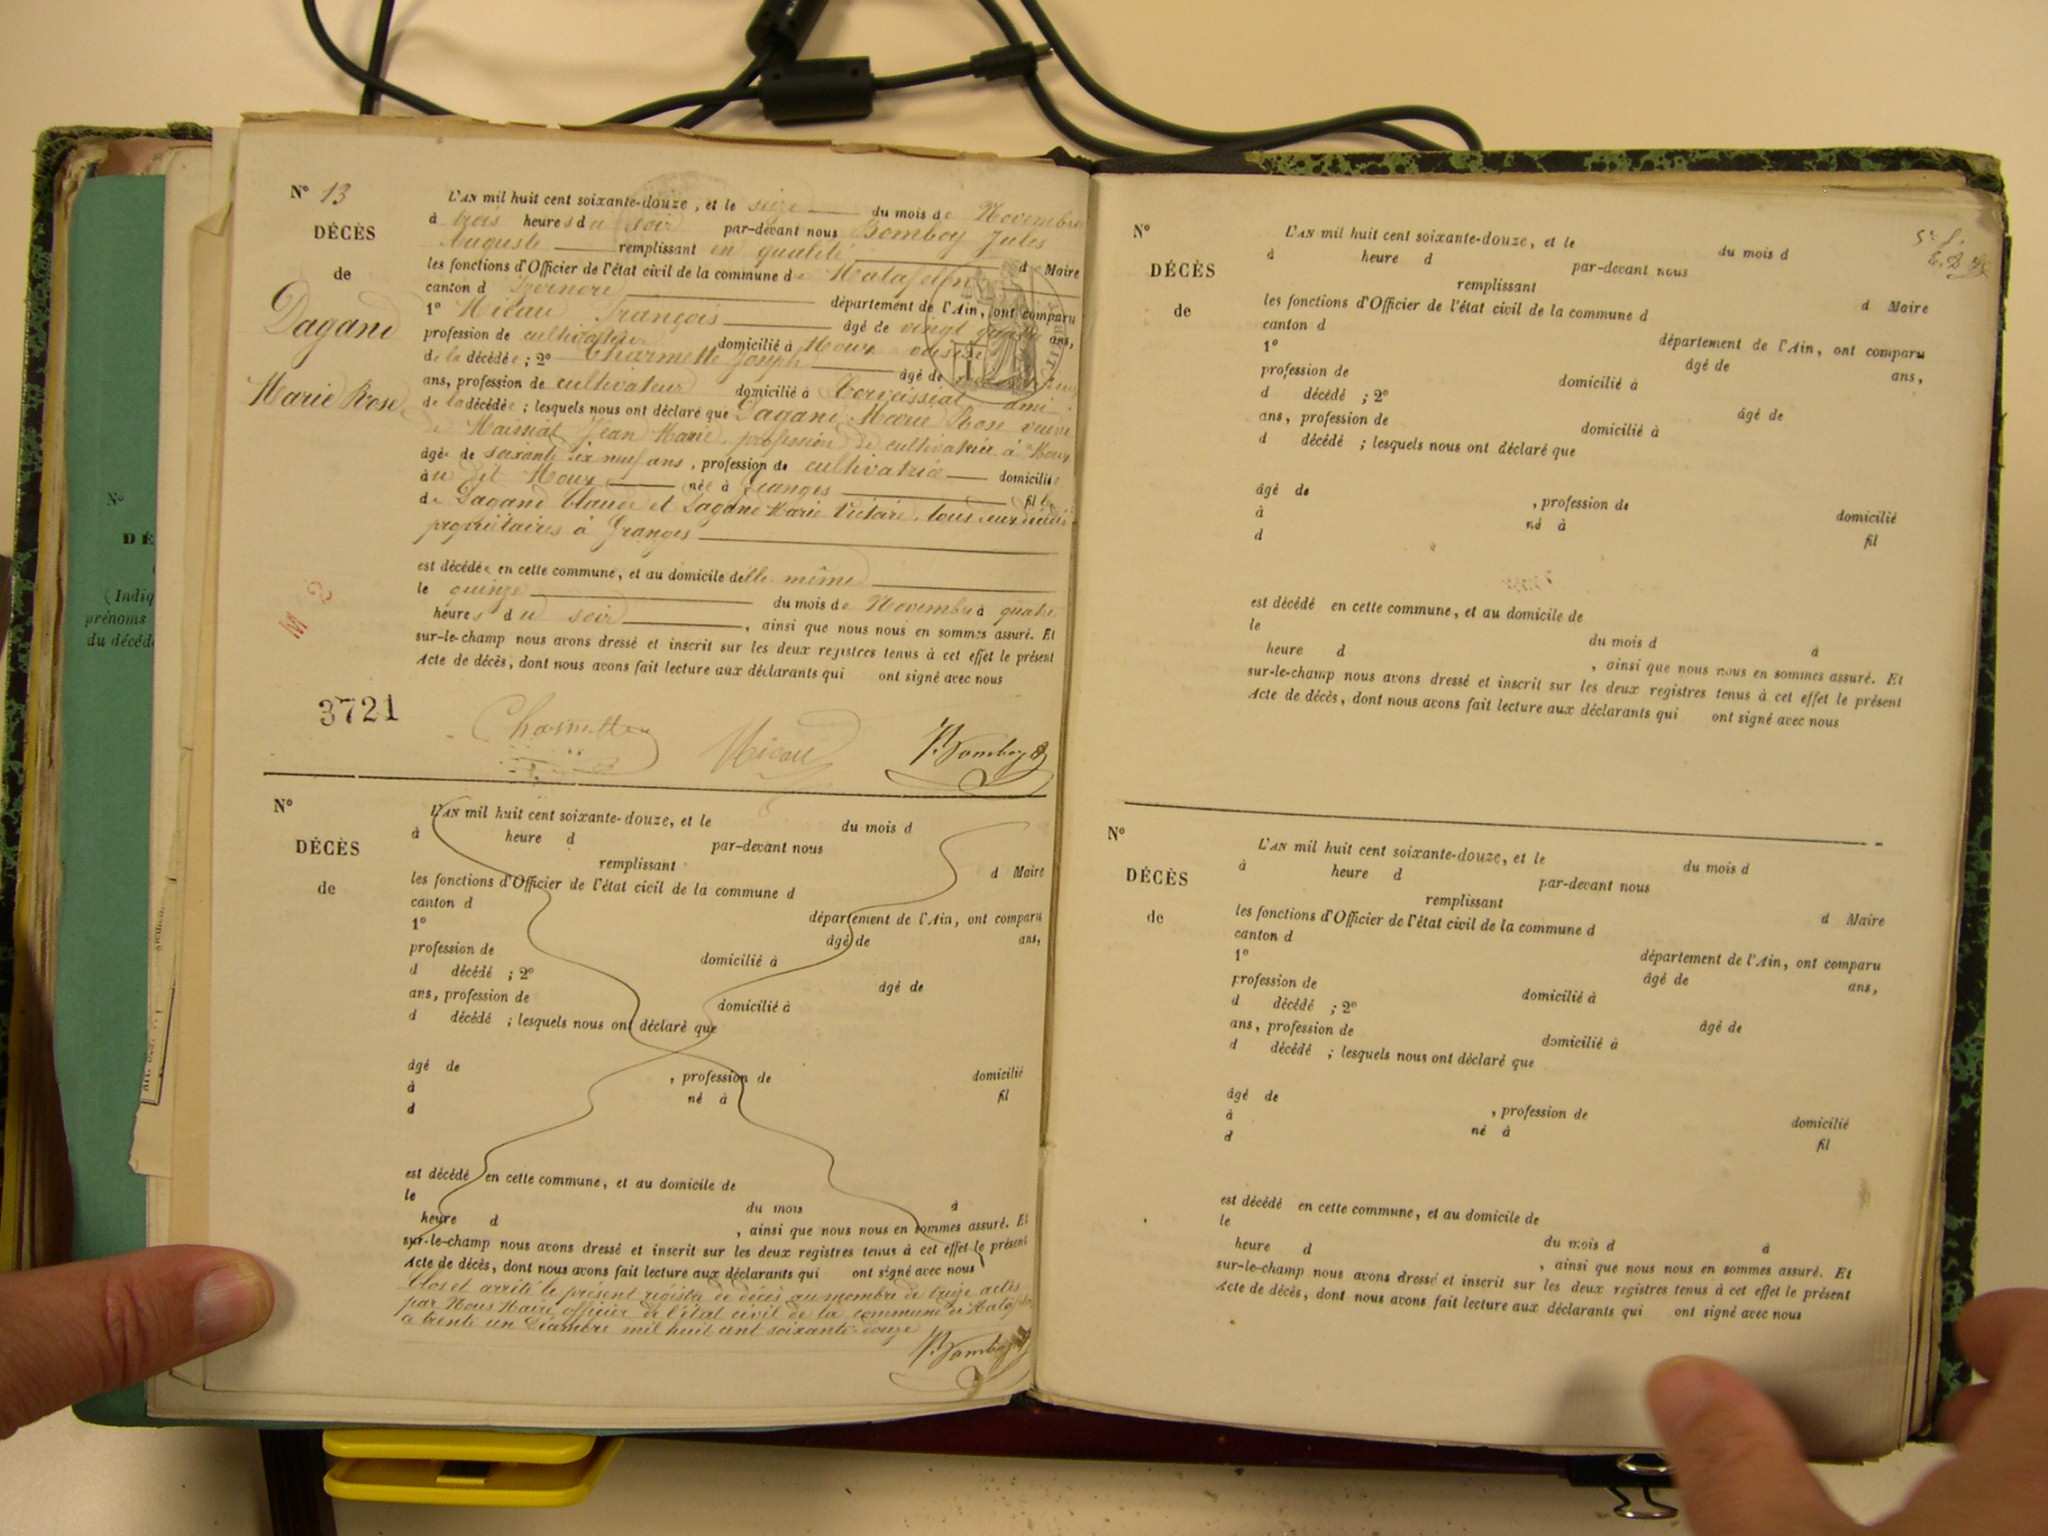 N° 13
DÉCÈS
de
Dagand
Marie Rose
L'AN mil huit cent soixante-douze, et le seize du mois de Novembre
à trois heures du soir par-devant nous Bomboy Jules
Auguste remplissant en qualité d Maire
les fonctions d'Officier de l'état civil de la commune de Matafelon
canton d Izernore département de l'Ain, ont comparu
1° Nicau François âgé de vingt quatre ans,
profession de cultivateur domicilié à Moux
de la décédée ; 2° Charmette Joseph âgé de
ans, profession de cultivateur domicilié à ami
de la décédée ; lesquels nous ont déclaré que Dagand Marie Rose veuve
de Maissiat Jean Marie, profession de cultivatrice à Moux
âgée de soixante dix neuf ans, profession de cultivatrice domiciliée
au dit Moux née à Granges fille
de Dagand Claude et Dagand Marie Victoire, tous deux
propriétaires à Granges
est décédée en cette commune, et au domicile d'elle même
le quinze du mois de Novembre à quatre
heures du soir, ainsi que nous nous en sommes assuré. Et
sur-le-champ nous avons dressé et inscrit sur les deux registres tenus à cet effet le présent
Acte de décès, dont nous avons fait lecture aux déclarants qui ont signé avec nous
3721
Charmette Nicau J. Bomboy
N°
DÉCÈS
de
L'AN mil huit cent soixante-douze, et le du mois d
à heure d par-devant nous
remplissant d Maire
les fonctions d'Officier de l'état civil de la commune d
canton d département de l'Ain, ont comparu
1° âgé de ans,
profession de domicilié à
d décédé ; 2° âgé de
ans, profession de domicilié à
d décédé ; lesquels nous ont déclaré que
âgé de , profession de domicilié
à né à fil
d
est décédé en cette commune, et au domicile de
le du mois à
heure d , ainsi que nous nous en sommes assuré. Et
sur-le-champ nous avons dressé et inscrit sur les deux registres tenus à cet effet le présent
Acte de décès, dont nous avons fait lecture aux déclarants qui ont signé avec nous
Clos et arrêté le présent registre de décès au nombre de treize actes
par Nous Maire, officier de l'état civil de la commune de Matafelon
a trente un Décembre mil huit cent soixante-douze
J. Bomboy
N°
DÉCÈS
de
L'AN mil huit cent soixante-douze, et le du mois d
à heure d par-devant nous
remplissant d Maire
les fonctions d'Officier de l'état civil de la commune d
canton d département de l'Ain, ont comparu
1° âgé de ans,
profession de domicilié à
d décédé ; 2° âgé de
ans, profession de domicilié à
d décédé ; lesquels nous ont déclaré que
âgé de , profession de domicilié
à né à fil
d
est décédé en cette commune, et au domicile de
le du mois d à
heure d , ainsi que nous nous en sommes assuré. Et
sur-le-champ nous avons dressé et inscrit sur les deux registres tenus à cet effet le présent
Acte de décès, dont nous avons fait lecture aux déclarants qui ont signé avec nous
N°
DÉCÈS
de
L'AN mil huit cent soixante-douze, et le du mois d
à heure d par-devant nous
remplissant d Maire
les fonctions d'Officier de l'état civil de la commune d
canton d département de l'Ain, ont comparu
1° âgé de ans,
profession de domicilié à
d décédé ; 2° âgé de
ans, profession de domicilié à
d décédé ; lesquels nous ont déclaré que
âgé de , profession de domicilié
à né à fil
d
est décédé en cette commune, et au domicile de
le du mois d à
heure d , ainsi que nous nous en sommes assuré. Et
sur-le-champ nous avons dressé et inscrit sur les deux registres tenus à cet effet le présent
Acte de décès, dont nous avons fait lecture aux déclarants qui ont signé avec nous
N°
DÉ
(Indiq
prénoms
du décédé